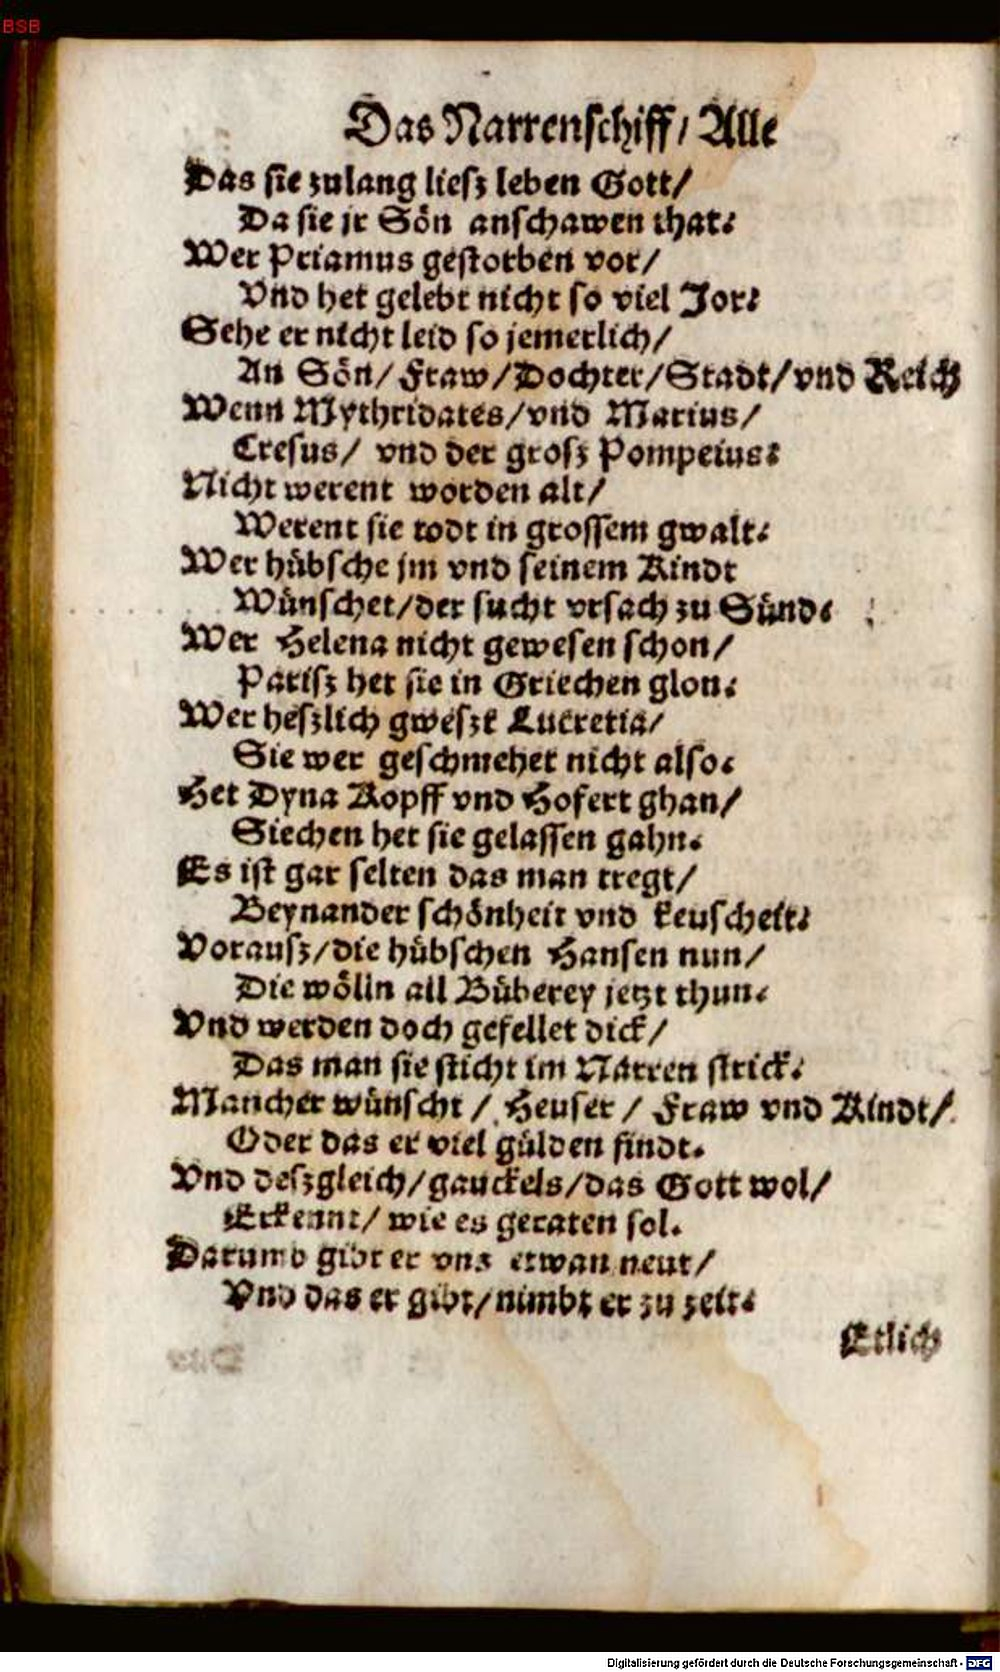 BSB
Das Narrenschiff/ Alle
Das sie zulang liesz leben Gott/
Da sie jr Sön anschawen that.
Wer Priamus gestorben vor/
Vnd het gelebt nicht so viel Jor.
Sehe er nicht leid so jemerlich/
An Sön/ Fraw/ Dochter/ Stadt/ vnd Reich
Wenn Mythridates/ vnd Marius/
Cresus/ vnd der grosz Pompeius.
Nicht werent worden alt/
Werent sie todt in grossem gwalt.
Wer hübsche jm vnd seinem Kindt
Wünschet/ der sucht vrsach zu Sünd.
Wer Helena nicht gewesen schon/
Parisz het sie in Griechen glon.
Wer heszlich gweszt Lucretia/
Sie wer geschmehet nicht also.
Het Dyna Kopff vnd Hofert ghan/
Siechen het sie gelassen gahn.
Es ist gar selten das man tregt/
Beynander schönheit vnd keuscheit.
Vorausz/ die hübschen Hansen nun/
Die wölln all Büberey jetzt thun.
Vnd werden doch gefellet dick/
Das man sie sticht im Narren strick.
Mancher wünscht/ Heuser/ Fraw vnd Kindt/
Oder das er viel gülden findt.
Vnd deszgleich/ gauckels/ das Gott wol/
Erkennt/ wie es geraten sol.
Darumb gibt er vns etwan neut/
Vnd das er gibt/ nimbt er zu zeit.
Etlich
Digitalisierung gefördert durch die Deutsche Forschungsgemeinschaft - DFG